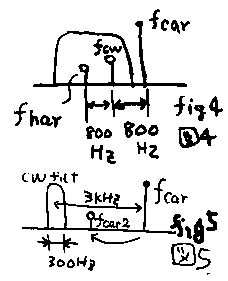 fcar
fcw
fhar
800 Hz
800 Hz
fig4
図4
CW filt
3kHz
fcar
fcar2
fig5
図5
300Hz